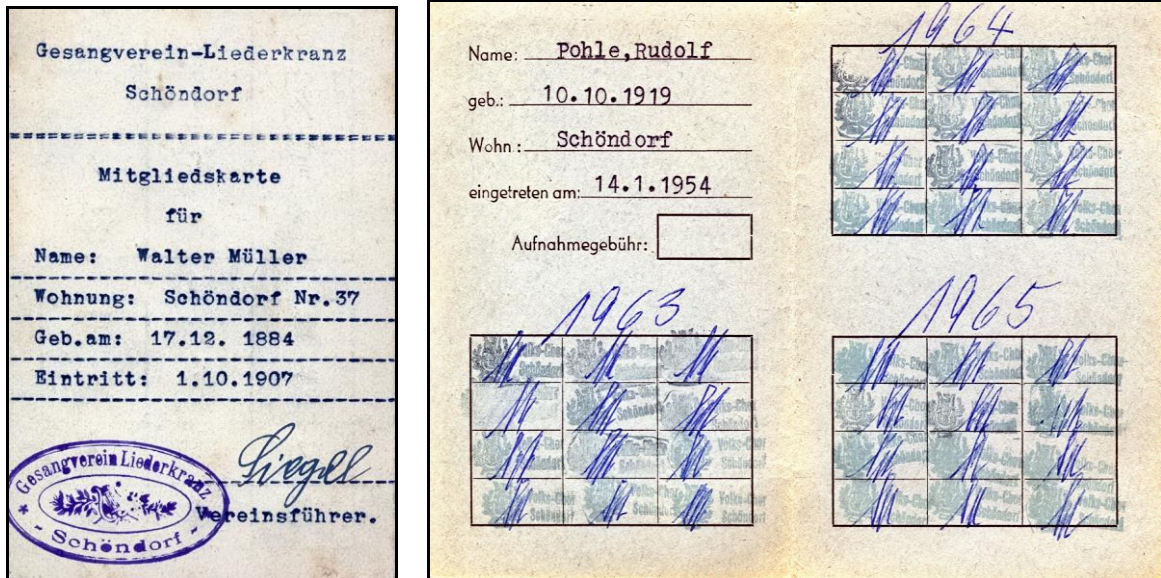 Gesangverein-Liederkranz
Schöndorf
Mitgliedskarte
für
Name: Walter Müller
Wohnung: Schöndorf Nr.37
Geb.am: 17.12. 1884
Eintritt: 1.10.1907
Siegel
Vereinsführer.
* Gesangverein Liederkranz
- Schöndorf -
Name: Pohle,Rudolf
geb.: 10.10.1919
Wohn: Schöndorf
eingetreten am: 14.1.1954
Aufnahmegebühr:
1963
Volks-Chor
Schöndorf
1964
Volks-Chor
Schöndorf
1965
Volks-Chor
Schöndorf